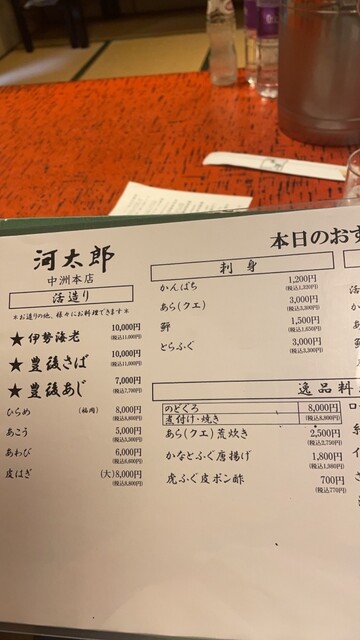 河太郎
中洲本店
活造り
※お造りの他、様々にお料理できます※
★伊勢海老 10,000円
(税込11,000円)
★豊後さば 10,000円
(税込11,000円)
★豊後あじ 7,000円
(税込7,700円)
ひらめ (福岡) 8,000円
(税込8,800円)
あこう 5,000円
(税込5,500円)
あわび 6,000円
(税込6,600円)
皮はぎ (大)8,000円
(税込8,800円)
本日のおす
刺身
かんぱち 1,200円
(税込1,320円)
あら(クエ) 3,000円
(税込3,300円)
1,500円
(税込1,650円)
とらふぐ 3,000円
(税込3,300円)
逸品料
のどぐろ 8,000円
煮付け・焼き (税込8,800円)
あら(クエ)荒炊き 2,500円
(税込2,750円)
かなとふぐ唐揚げ 1,800円
(税込1,980円)
虎ふぐ皮ポン酢 700円
(税込770円)